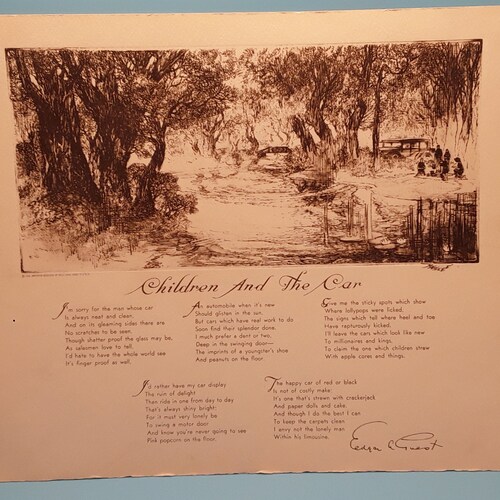 Children And The Car
I'm sorry for the man whose car
Is always neat and clean,
And on its gleaming sides there are
No scratches to be seen.
Though shatter proof the glass may be,
As salesmen love to tell,
I'd hate to have the whole world see
It's finger proof as well.
An automobile when it's new
Should glisten in the sun.
But cars which have real work to do
Soon find their splendor done.
I much prefer a dent or two,
Deep in the swinging door—
The imprints of a youngster's shoe
And peanuts on the floor.
Give me the sticky spots which show
Where lollypops were licked,
The signs which tell where heel and toe
Have rapturously kicked.
I'll leave the cars which look like new
To millionaires and kings,
To claim the one which children strew
With apple cores and things.
I'd rather have my car display
The ruin of delight
Than ride in one from day to day
That's always shiny bright;
For it must very lonely be
To swing a motor door
And know you're never going to see
Pink popcorn on the floor.
The happy car of red or black
Is not of costly make:
It's one that's strewn with crackerjack
And paper dolls and cake.
And though I do the best I can
To keep the carpets clean
I envy not the lonely man
Within his limousine.
Edgar A. Guest